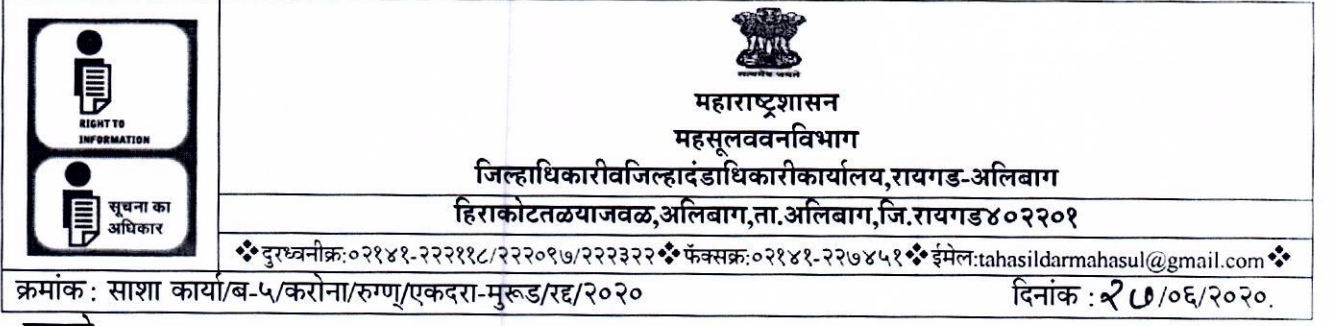 RIGHT TO
INFORMATION
सूचना का
अधिकार
सत्यमेव जयते
महाराष्ट्रशासन
महसूलववनविभाग
जिल्हाधिकारीवजिल्हादंडाधिकारीकार्यालय,रायगड-अलिबाग
हिराकोटतळयाजवळ,अलिबाग,ता.अलिबाग,जि.रायगड४०२२०१
❖दुरध्वनीक्र:०२१४१-२२२११८/२२२०९७/२२२३२२❖फॅक्सक्र:०२१४१-२२७४५१❖ईमेल:tahasildarmahasul@gmail.com❖
क्रमांक : साशा कार्या/ब-५/करोना/रुग्ण/एकदरा-मुरूड/रद्द/२०२० दिनांक : २७/०६/२०२०.